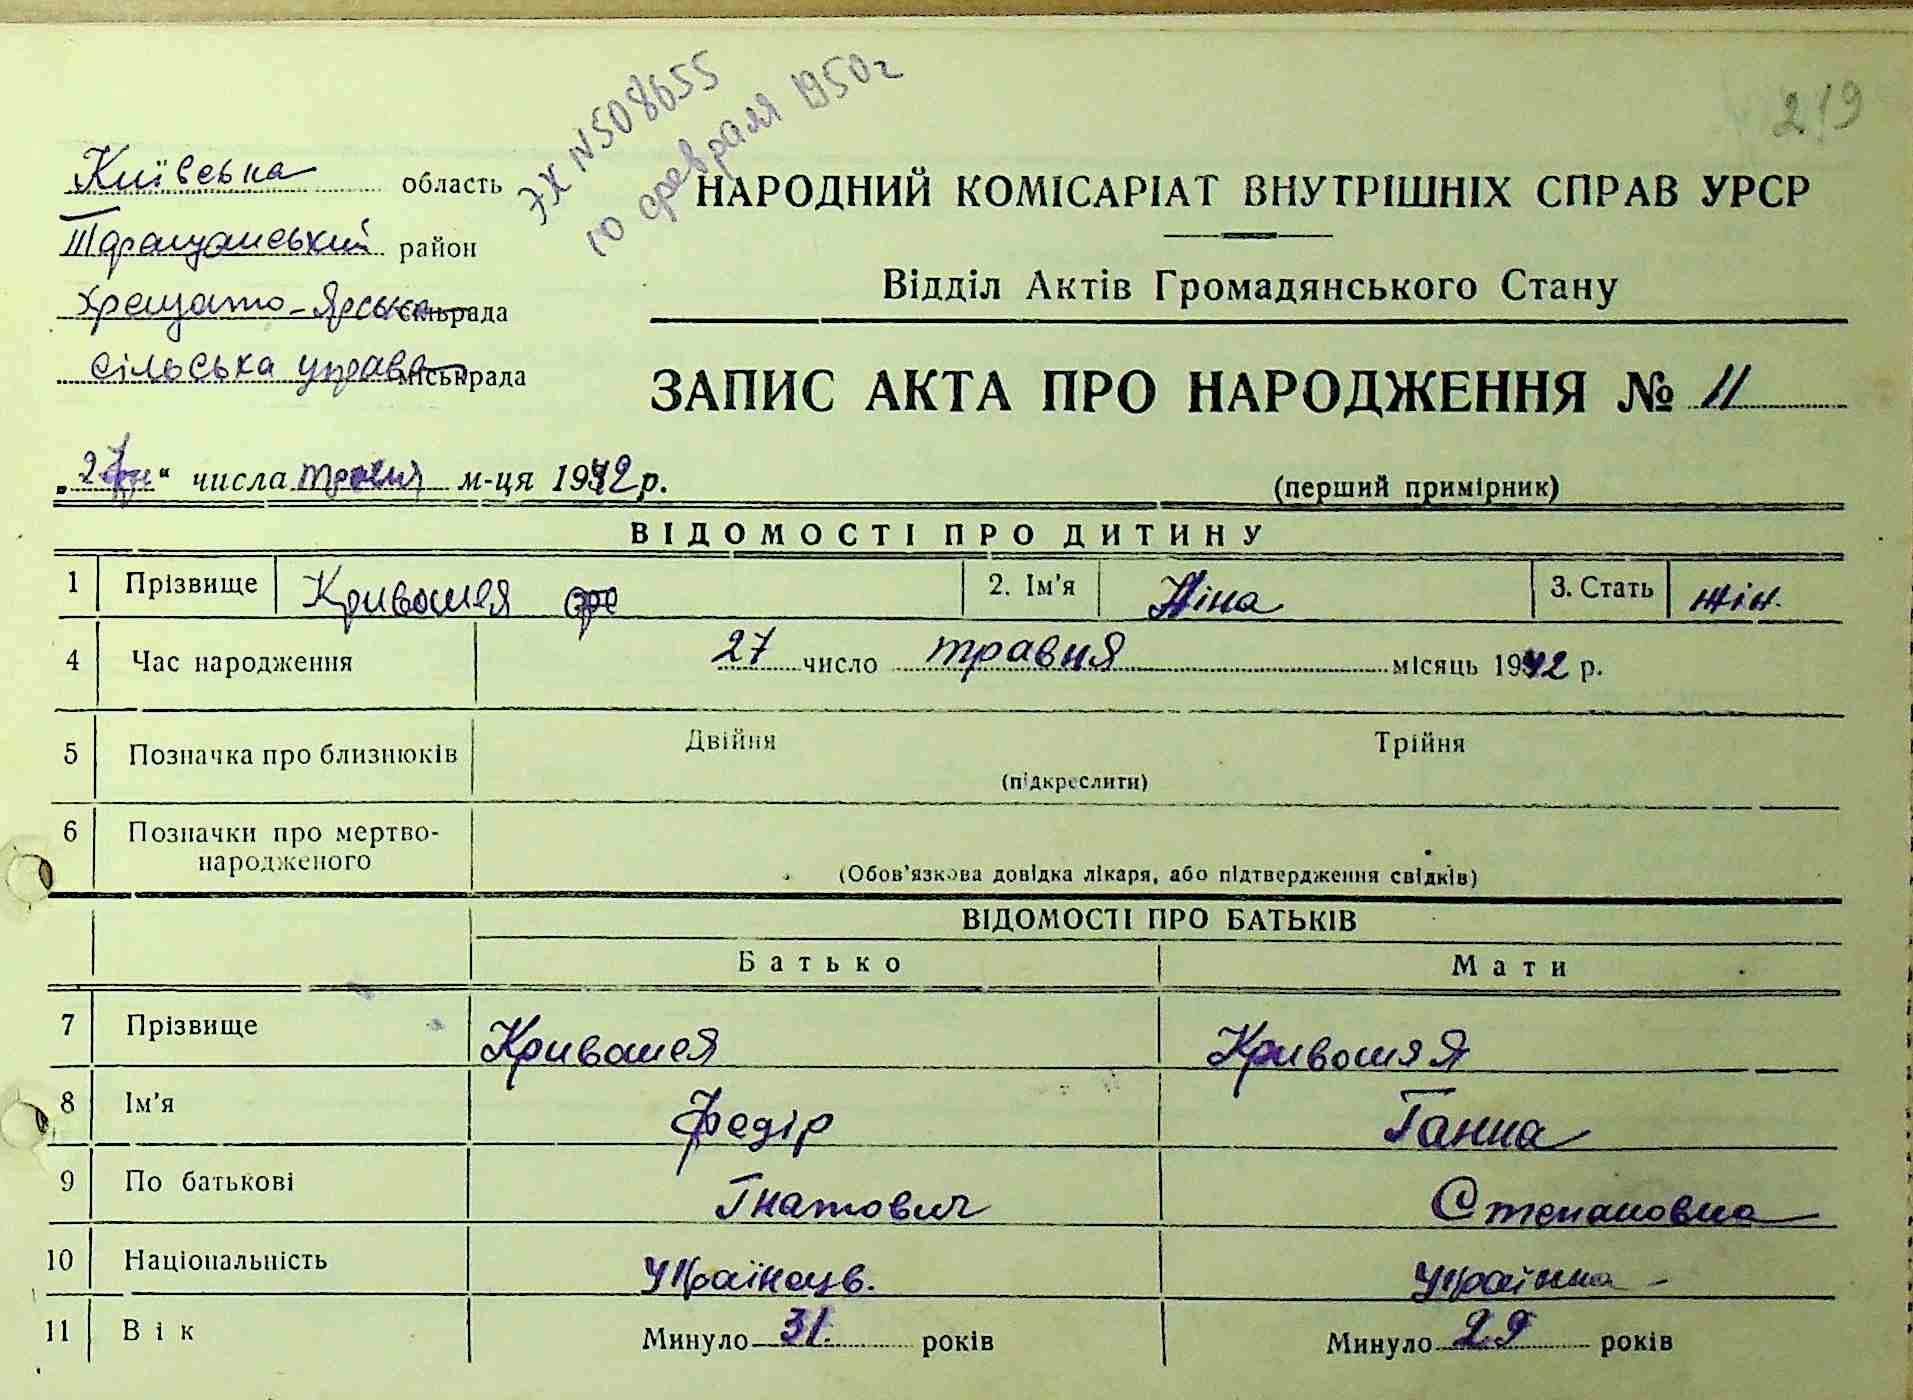 ЭХ №508655
10 февраля 1950г
219
Київська область
Таращанський район
Хрещато-Ярська сільрада
сільська управа міськрада
НАРОДНИЙ КОМІСАРІАТ ВНУТРІШНІХ СПРАВ УРСР
Відділ Актів Громадянського Стану
ЗАПИС АКТА ПРО НАРОДЖЕННЯ № 11
" числа м-ця 1942 р.
(перший примірник)
ВІДОМОСТІ ПРО ДИТИНУ
1 Прізвище Кривошея 2. Ім'я Ніна 3. Стать жін.
4 Час народження 27 число травня місяць 1942 р.
5 Позначка про близнюків Двійня Трійня
(підкреслити)
6 Позначки про мертво-
народженого
(Обов'язкова довідка лікаря, або підтвердження свідків)
ВІДОМОСТІ ПРО БАТЬКІВ
Батько Мати
7 Прізвище Кривошея Кривошяя
8 Ім'я Федір Ганна
9 По батькові Гнатович Степановна
10 Національність Українець. Українка
11 Вік Минуло 31. років Минуло 29 років